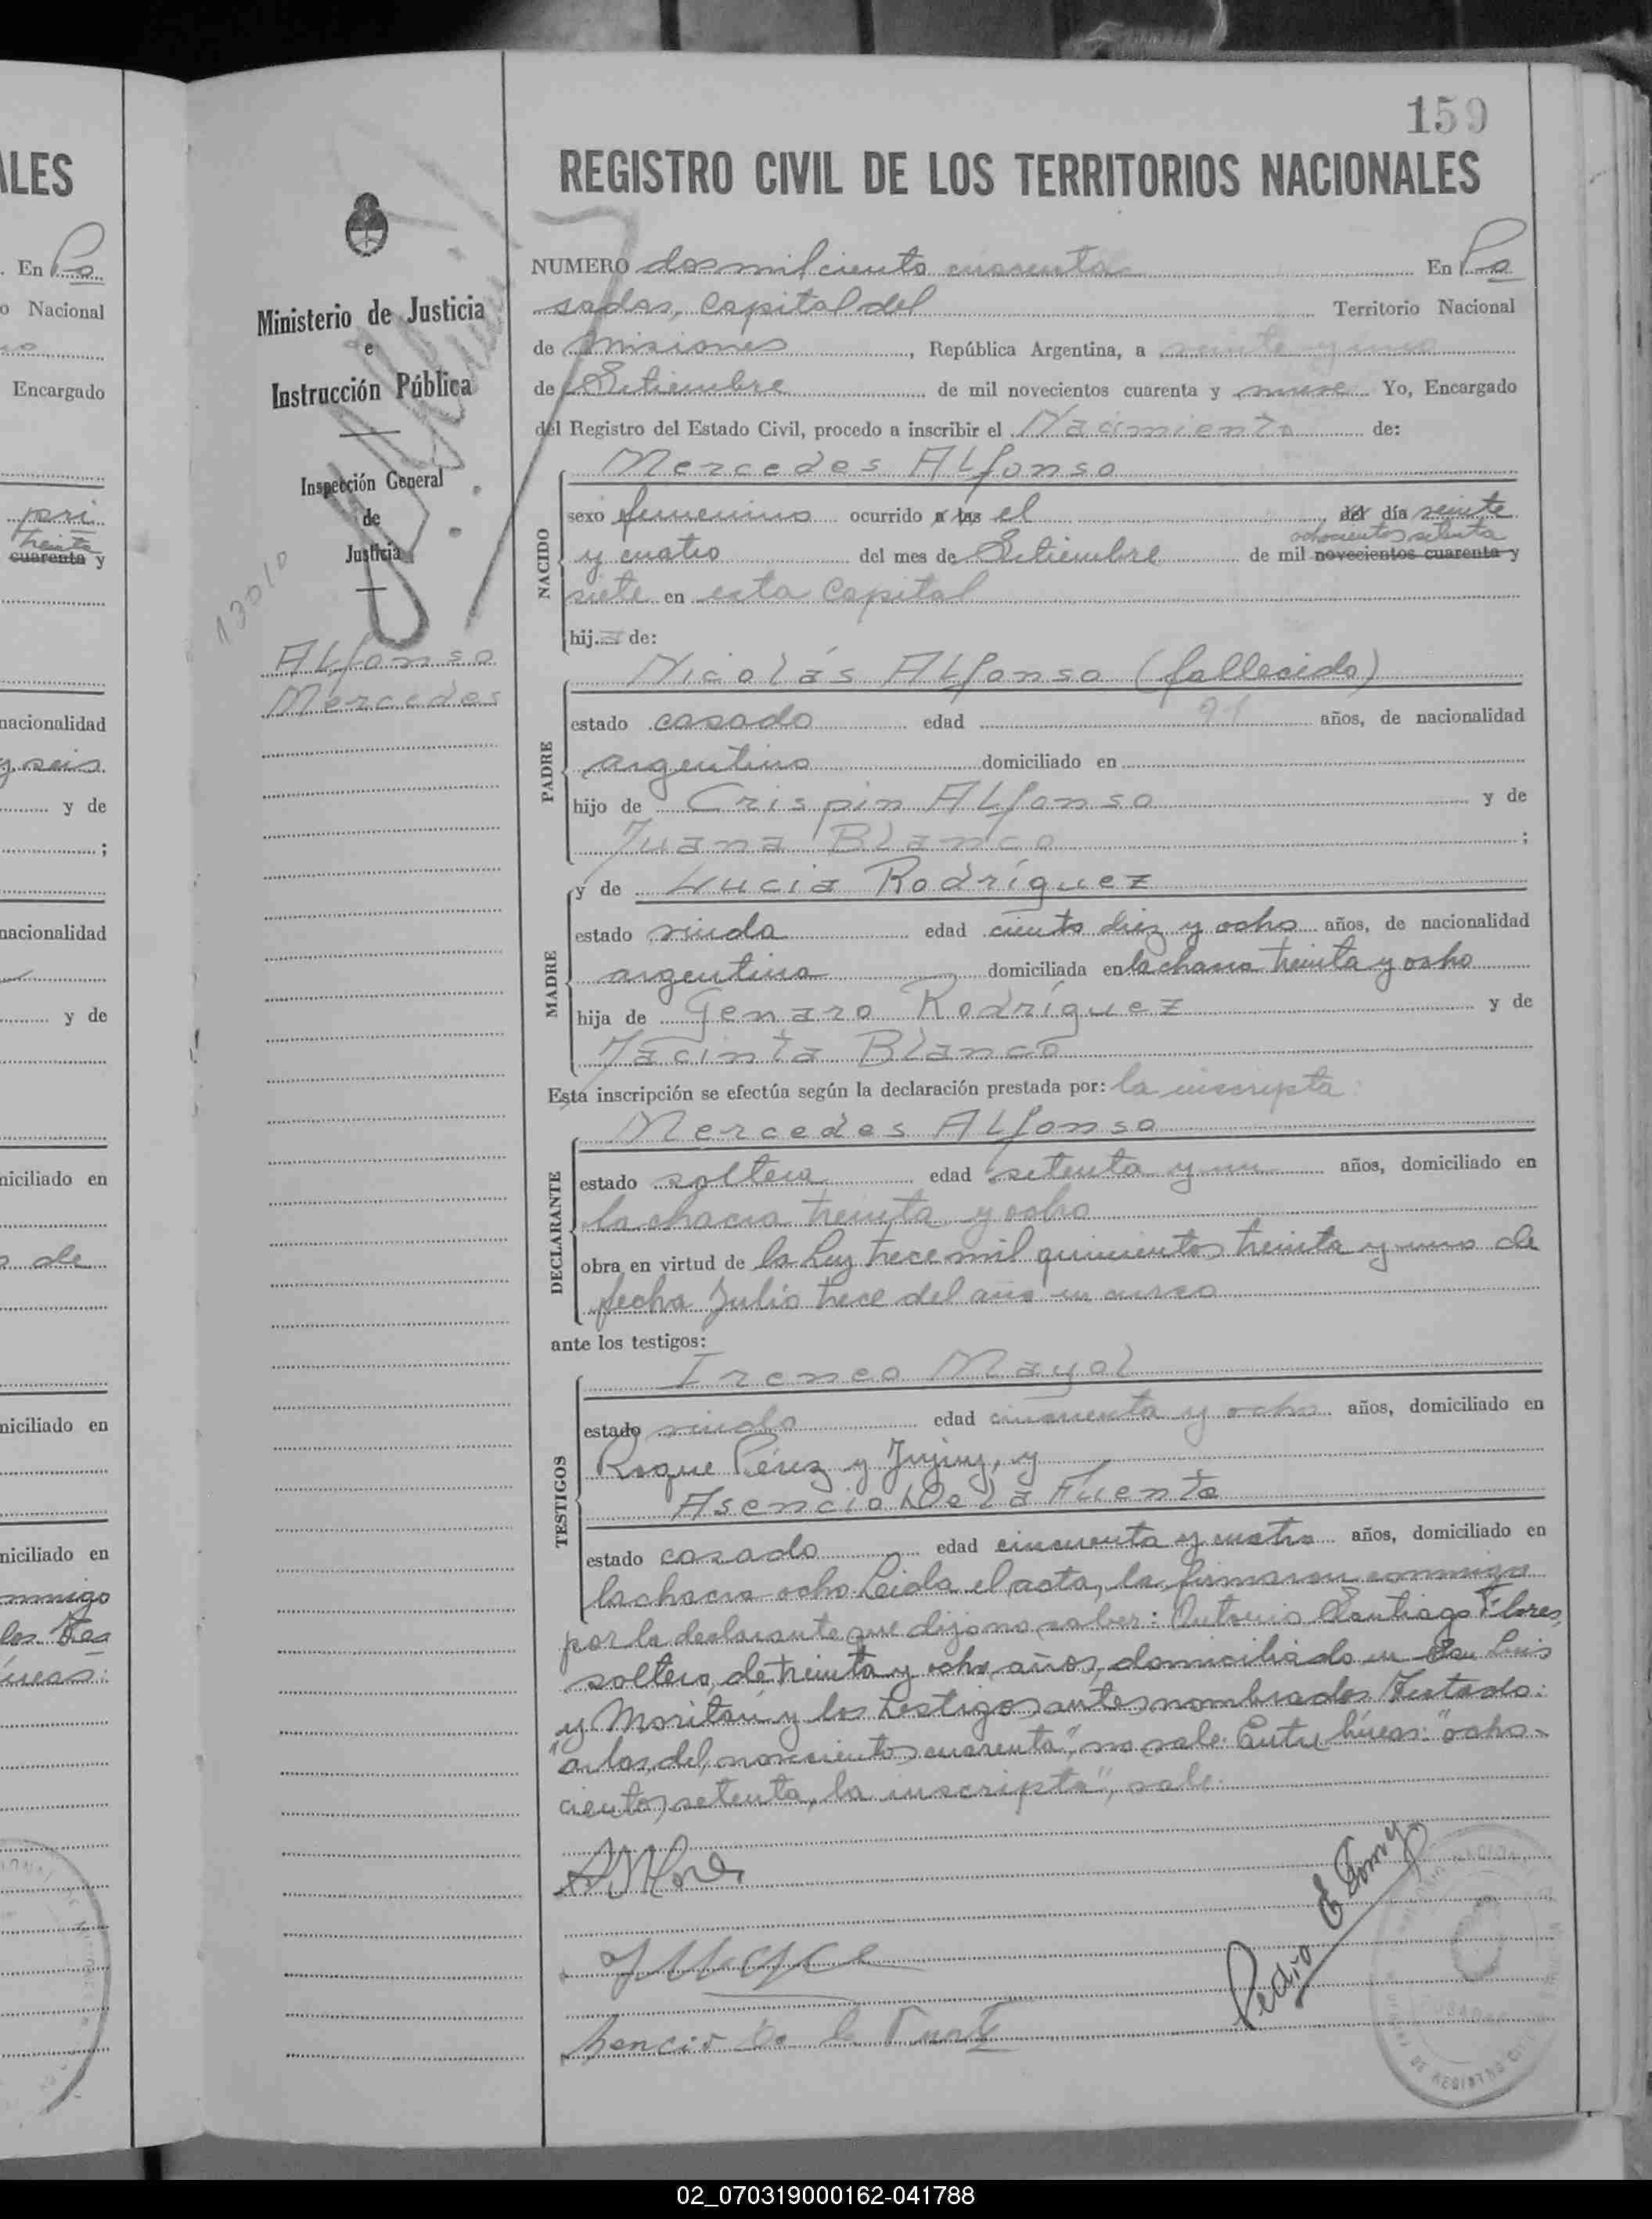 159
ALES
REGISTRO CIVIL DE LOS TERRITORIOS NACIONALES
. En Po
o Nacional
Encargado
pri
treinta
cuarenta y
nacionalidad
y seis
y de
;
nacionalidad
y de
niciliado en
o de
niciliado en
niciliado en
nmigo
los tes
íneas:
Ministerio de Justicia
e
Instrucción Pública
Inspección General
de
Justicia
13010
Alfonso
Mercedes
NUMERO dos mil ciento cuarenta En Po
sadas, capital del Territorio Nacional
de Misiones, República Argentina, a veinte y uno
de Setiembre de mil novecientos cuarenta y nueve Yo, Encargado
del Registro del Estado Civil, procedo a inscribir el Nacimiento de:
Mercedes Alfonso
NACIDO
sexo femenino ocurrido a las el del día veinte
ochocientos setenta
y cuatro del mes de Setiembre de mil novecientos cuarenta y
siete en esta Capital
hija de:
Nicolás Alfonso (fallecido)
PADRE
estado casado edad 91 años, de nacionalidad
argentino domiciliado en
hijo de Crispin Alfonso y de
Juana Blanco ;
y de Lucia Rodríguez
MADRE
estado viuda edad ciento diez y ocho años, de nacionalidad
argentina domiciliada en la chacra treinta y ocho
hija de Genaro Rodríguez y de
Jacinta Blanco
Esta inscripción se efectúa según la declaración prestada por: la inscripta
Mercedes Alfonso
DECLARANTE
estado soltera edad setenta y un años, domiciliado en
la chacra treinta y ocho
obra en virtud de la Ley trece mil quinientos treinta y uno de
fecha Julio trece del año en curso
ante los testigos:
Ireneo Mayol
TESTIGOS
estado viudo edad cincuenta y ocho años, domiciliado en
Roque Pérez y Jujuy, y
Asencio De la Fuente
estado casado edad cincuenta y cuatro años, domiciliado en
la chacra ocho. Leída el acta, la firmaron conmigo
por la declarante que dijo no saber: Antonio Santiago Flores,
soltero, de treinta y ocho años, domiciliado en San Luis
y Moritán y los testigos antes nombrados. Testado:
"a las, del, novecientos cuarenta", no vale. Entre líneas: "ocho-
cientos setenta, la inscripta", vale.
Pedio E Gomez
Asencio De la Fuente
POSADAS
02_070319000162-041788